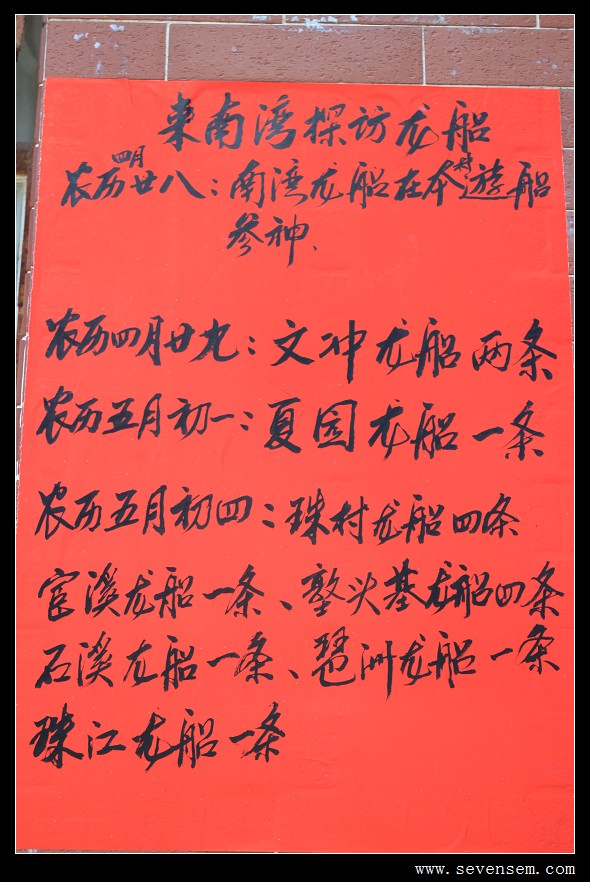 東南湾探访龙船
农历四月廿八：南湾龙船在本村遊船
参神、
农历四月廿九：文冲龙船两条
农历五月初一：夏园龙船一条
农历五月初四：珠村龙船四条
官溪龙船一条、塾头基龙船四条
石溪龙船一条、琶洲龙船一条
珠江龙船一条
www.sevensem.com